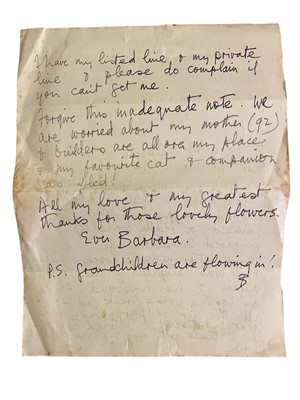 I have my listed line & my private
line & please do complain if
you can't get me.
Forgive this inadequate note. We
are worried about my mother (92)
& builders are all over my place
& my favourite cat & companion
has died!
All my love & my greatest
thanks for those lovely flowers.
Ever Barbara.
P.S. Grandchildren are flowing in!
B